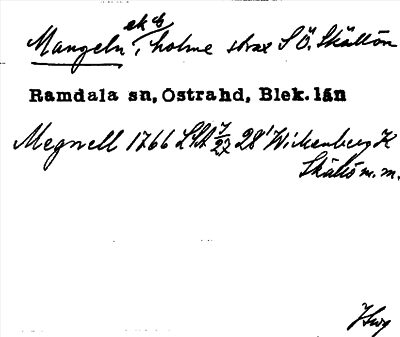 ek b
Mangeln, holme strax S Ö. Skällön
Ramdala sn, Östrahd, Blek. län
Megnell 1766 LSA 7/27 28' Wickenberg K
Skällö m. m.